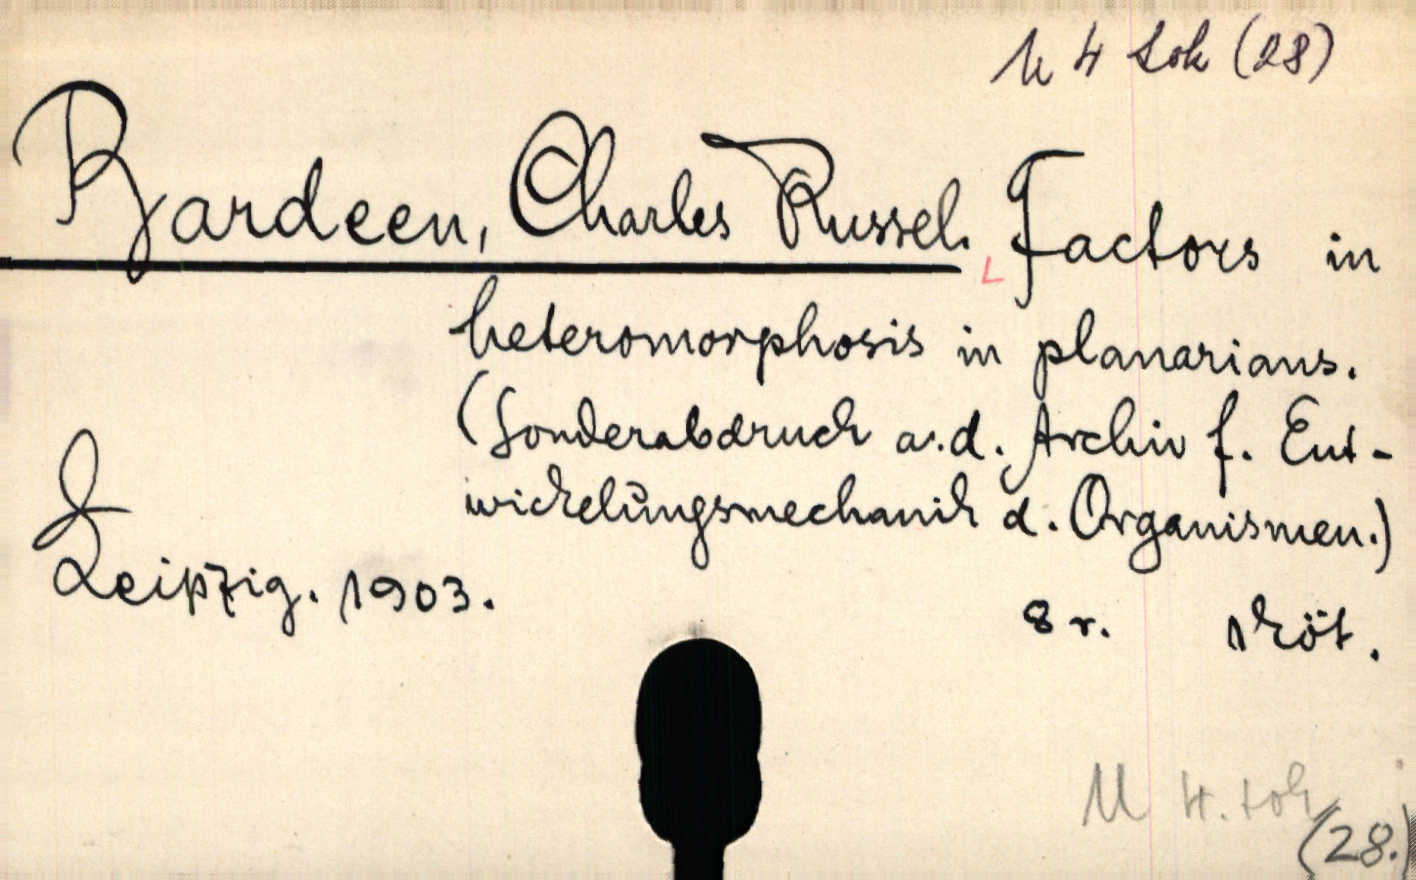 U 4 Sok (28)
Bardeen, Charles Russel. Factors in
heteromorphosis in planarians.
(Sonderabdruck a.d. Archiv f. Ent-
wickelungsmechanik d. Organismen.)
Leipzig. 1903.
8 r. 1 köt.
U 4. sok
(28.)